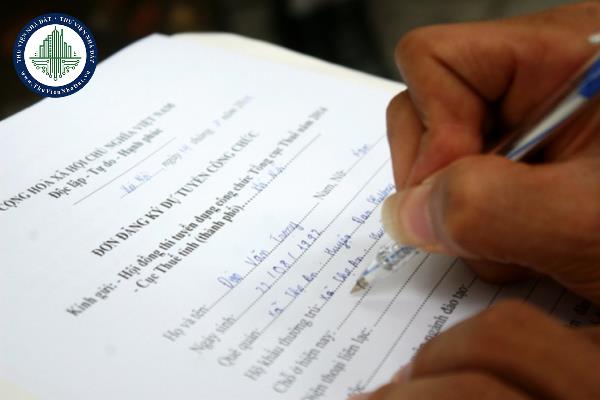 THƯ VIỆN NHÀ ĐẤT
www.ThuVienNhaDat.vn
CỘNG HÒA XÃ HỘI CHỦ NGHĨA VIỆT NAM
Độc lập - Tự do - Hạnh phúc
Hà Nội, ngày tháng năm 201
ĐƠN ĐĂNG KÝ DỰ TUYỂN CÔNG CHỨC
Kính gửi: - Hội đồng thi tuyển dụng công chức Tổng cục Thuế năm 2014
- Cục Thuế tỉnh (thành phố) Hà Nội
Họ và tên: Văn Nam, Nữ: Nam
Ngày sinh: 22/08/1992
Quê quán:
Hộ khẩu thường trú:
Chỗ ở hiện nay:
Điện thoại liên lạc:
ngành đào tạo: